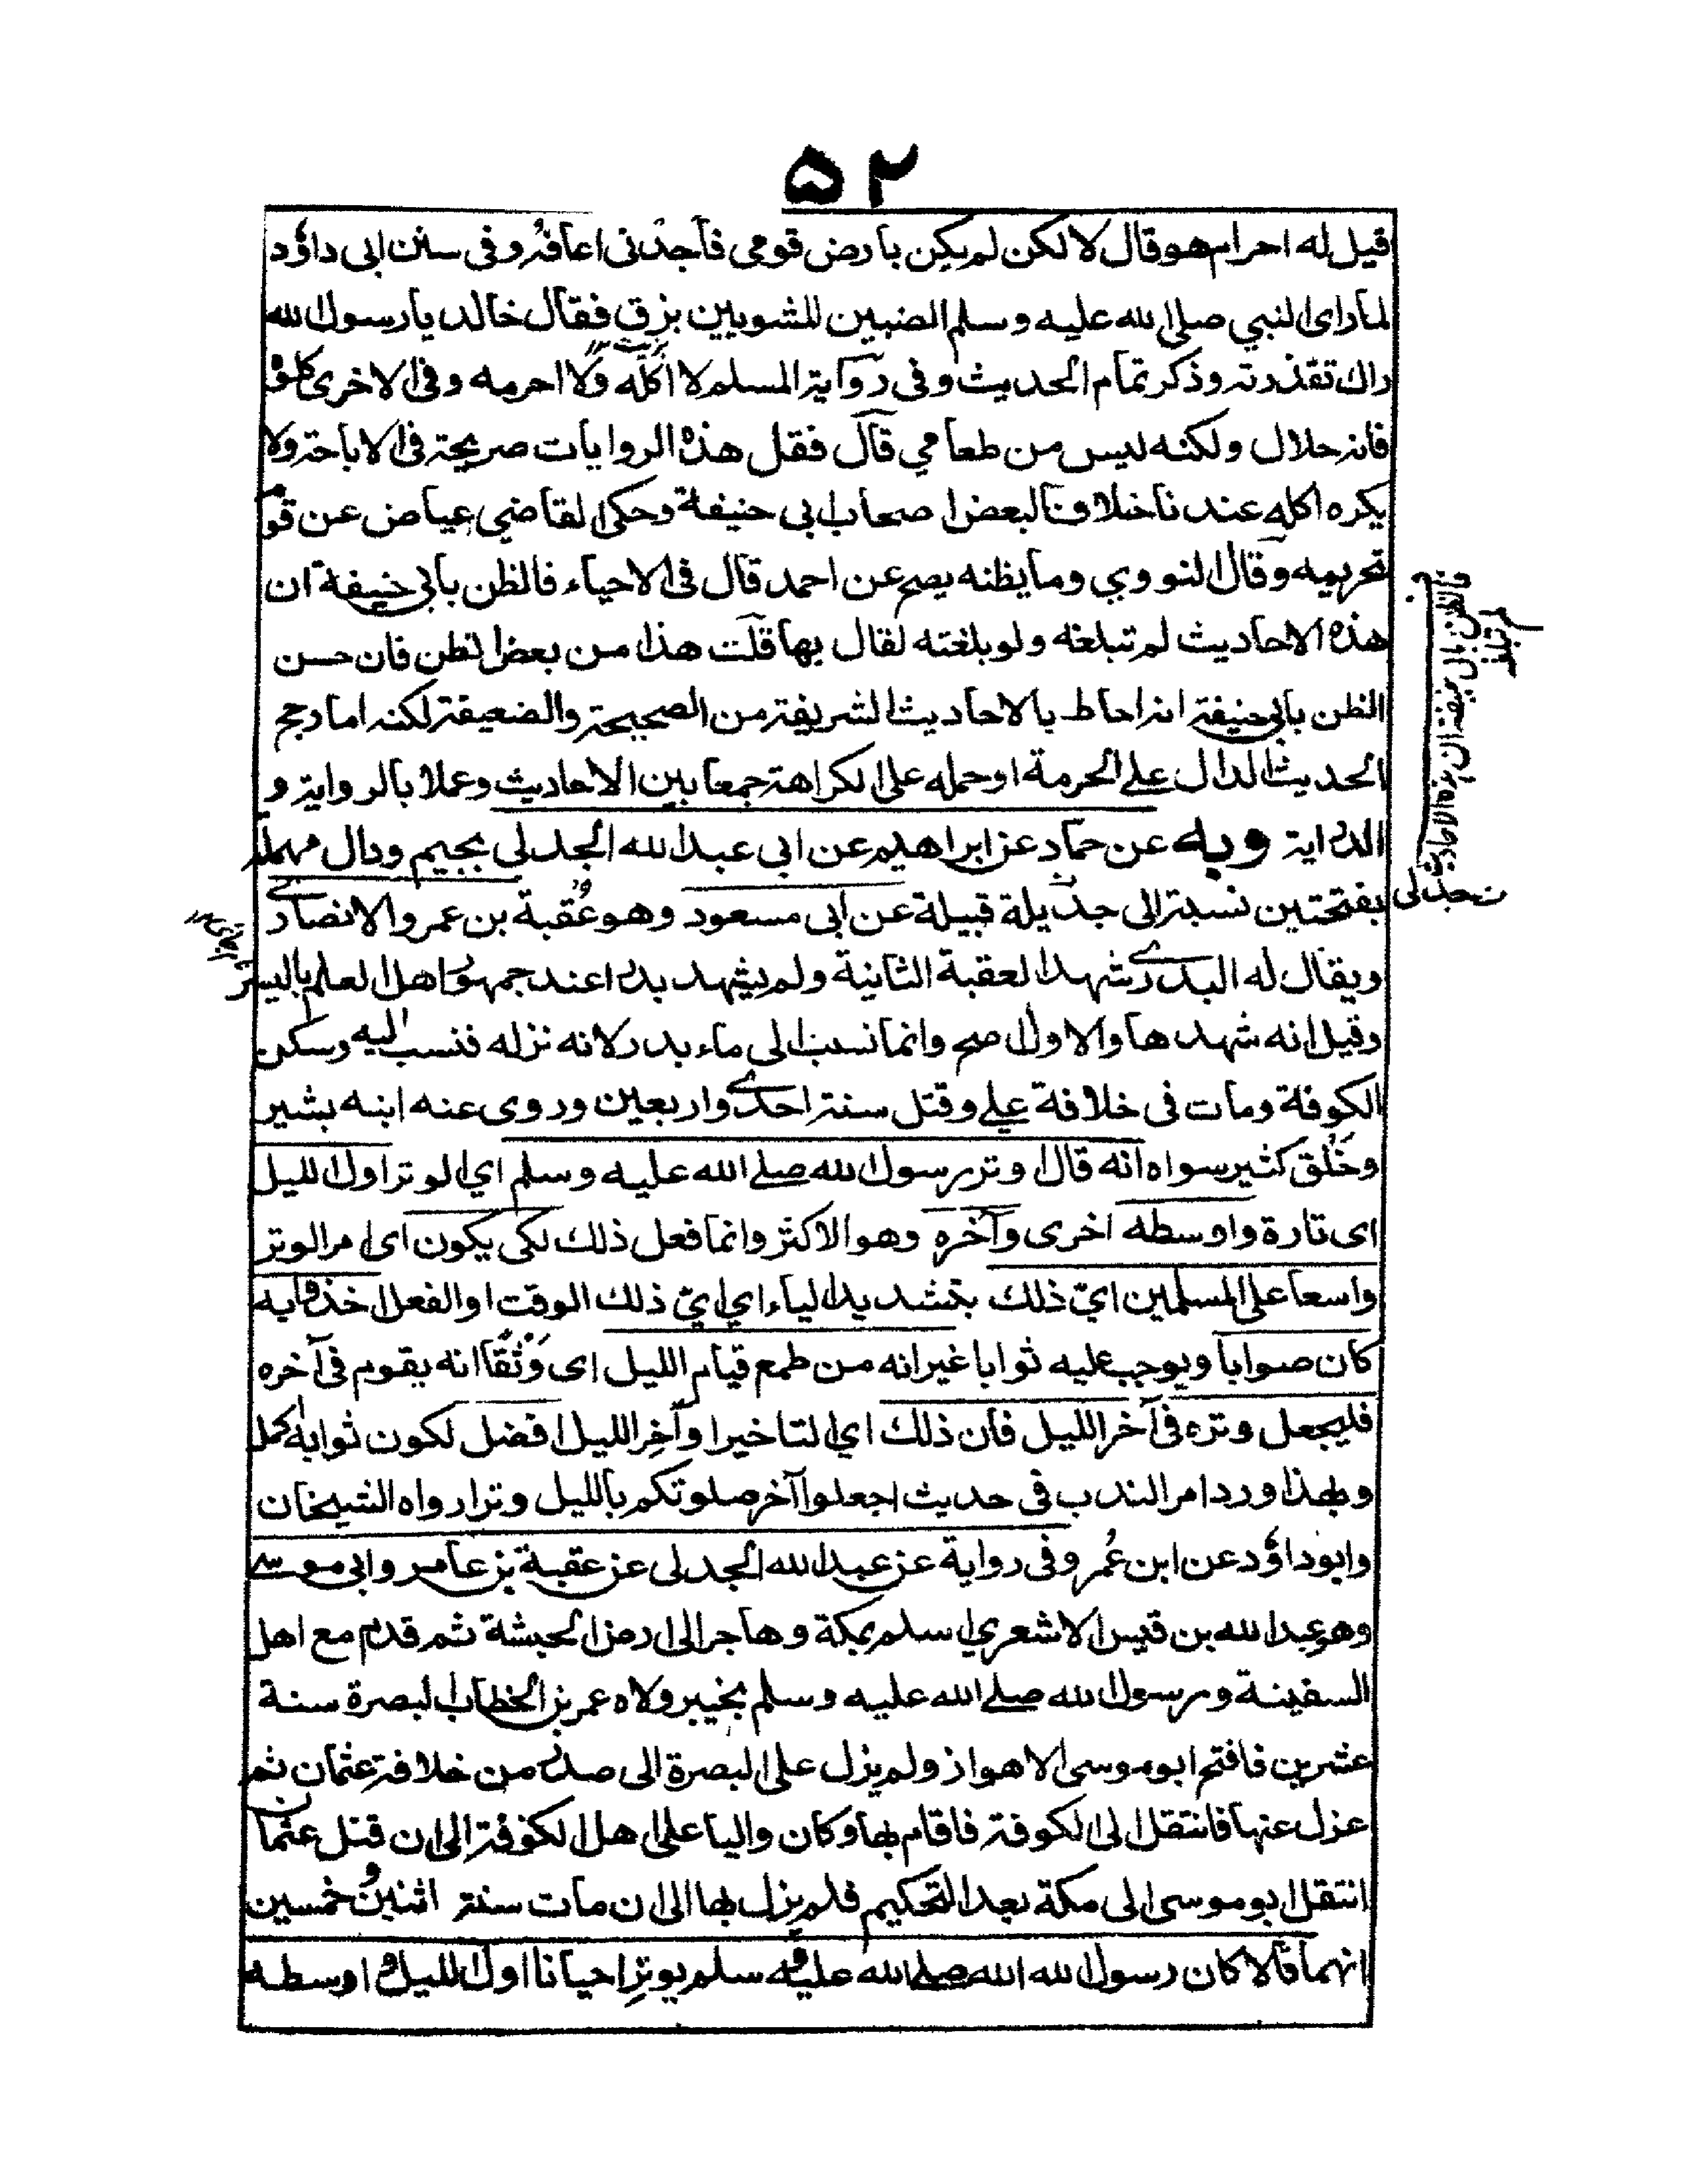 ۵۲
قيل له احرام هو قال لا لكن لم يكن بارض قومي فاجدنى اعافه وفى سنن ابى داؤد
لما راى النبي صلى الله عليه وسلم الضبين المشويين بزق فقال خالد يا رسول الله
راك تقذرته وذكر تمام الحديث وفى رواية المسلم لا اكله ولا احرمه وفى الاخرى كلوا
فانه حلال ولكنه ليس من طعامي قال فقل هذه الروايات صريحة فى الاباحة ولا
يكره اكله عندنا خلافا لبعض اصحاب ابى حنيفة وحكى القاضي عياض عن قوم
تحريمه وقال النووي وما يظنه يصح عن احمد قال فى الاحياء فالظن بابى حنيفة ان
هذه الاحاديث لم تبلغه ولو بلغته لقال بها قلت هذا من بعض الظن فان حسن
الظن بابى حنيفة انه احاط بالاحاديث الشريفة من الصحيحة والضعيفة لكنه اما رجح
الحديث الدال على الحرمة او حمله على الكراهة جمعا بين الاحاديث وعملا بالرواية و
الدراية وبه عن حماد عن ابراهيم عن ابى عبد الله الجدلى بجيم ودال مهملة
بفتحتين نسبة الى جديلة قبيلة عن ابى مسعود وهو عُقبة بن عمرو الانصارى
ويقال له البدرى شهد العقبة الثانية ولم يشهد بدرا عند جمهور اهل العلم بالسير
وقيل انه شهدها والاول اصح وانما نسب الى ماء بدر لانه نزله فنسب اليه وسكن
الكوفة ومات فى خلافة على وقتل سنة احدى واربعين وروى عنه ابنه بشير
وخَلق كثير سواه انه قال وتر رسول الله صلى الله عليه وسلم اي الوتر اول الليل
اى تارة واوسطه اخرى وآخره وهو الاكثر وانما فعل ذلك لكى يكون اى امر الوتر
واسعا على المسلمين ايّ ذلك بتشديد الياء اي ايّ ذلك الوقت او الفعل اخذوا به
كان صوابا ويوجب عليه ثوابا غير انه من طمع قيام الليل اى وَثُقا انه يقوم فى آخره
فليجعل وتره فى آخر الليل فان ذلك اي التاخير او آخر الليل افضل لكون ثوابه اكمل
وبهذا ورد امر الندب فى حديث اجعلوا آخر صلوتكم بالليل وترا رواه الشيخان
وابو داؤد عن ابن عُمر وفى رواية عن عبد الله الجدلى عن عقبة بن عامر وابى موسى
وهو عبد الله بن قيس الاشعري اسلم بمكة وهاجر الى ارض الحبشة ثم قدم مع اهل
السفينة ورسول الله صلى الله عليه وسلم بخيبر ولاه عمر بن الخطاب البصرة سنة
عشرين فافتح ابو موسى الاهواز ولم يزل على البصرة الى صدر من خلافة عثمان ثم
عزل عنها فانتقل الى الكوفة فاقام بها وكان واليا على اهل الكوفة الى ان قتل عثمان
انتقل ابو موسى الى مكة بعد التحكيم فلم يزل بها الى ان مات سنة اثنين و خمسين
انهما قالا كان رسول الله الله صلى الله عليه و سلم يوتر احيانا اول الليل و اوسطه
فالظن بابى حنيفة ان هذه الاحاديث
لم تبلغه
ن جدلى